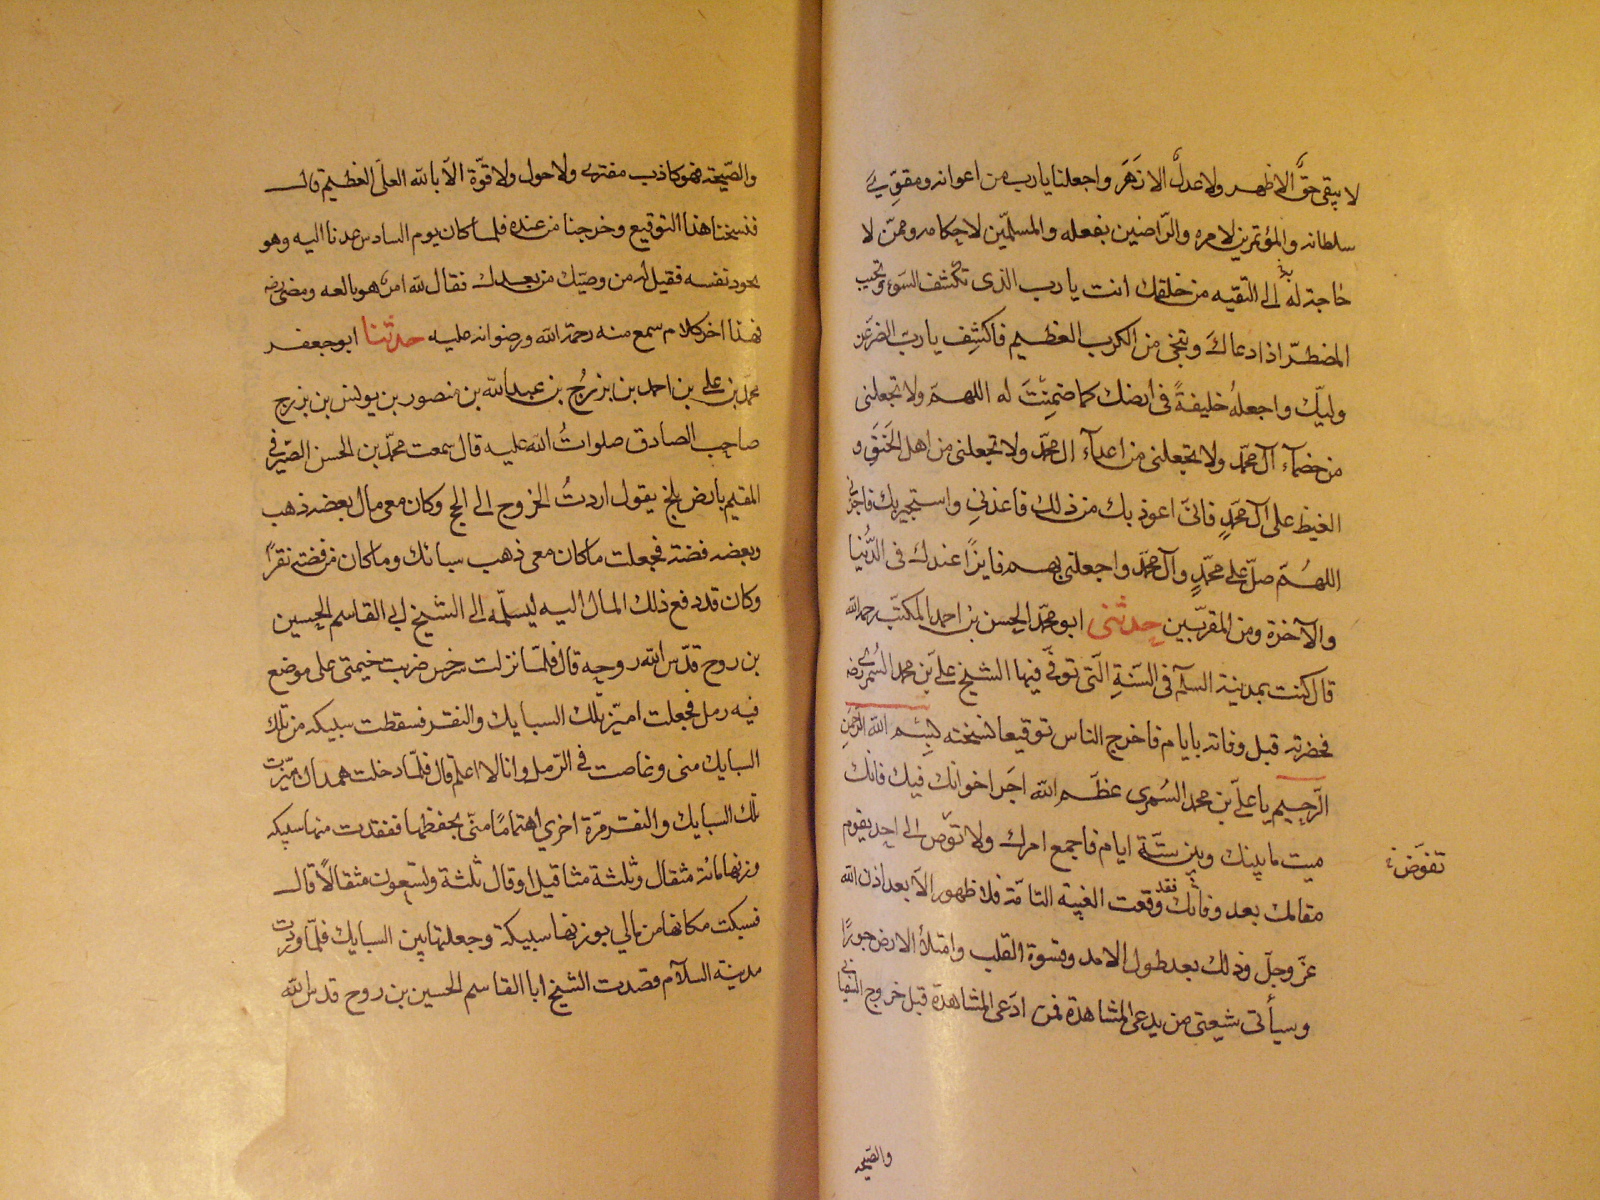 لا يبقى حقّ الا ظهر ولا عدل الا زهر واجعلنا يا رب من اعوانه ومقوّي
سلطانه والمؤتمرين لامره والرّاضين بفعله والمسلمّين لاحكامه وممّن لا
حاجة له به الى التقيه من خلقك انت يا رب الذى تكشف السوء وتجيب
المضطرّ اذا دعاك وتنجى من الكرب العظيم فاكشف يا ربّ الضر عن
وليّك واجعله خليفةً فى ارضك كما ضمنت له اللهمّ ولا تجعلنى
من خصماء آل محمّد ولا تجعلنى من اعداء ال محمّد ولا تجعلنى من اهل الحنق و
الغيظ على آل محمّدٍ فانى اعوذ بك من ذلك فاعذنى واستجير بك فاجرنى
اللهُمّ صلّ على محمّدٍ وآل محمّد واجعلنى بهم فايزًا عندك فى الدُّنيا
والآخرة ومن المقرّبين حدثنى ابو محمّد الحسن بن احمد المكتّب رحمه الله
قال كنت بمدينة السلم فى السَنَةِ الّتى توفّى فيها الشيخ علىّ بن محمد السُمرى رضه
فحضرته قبل وفاته بايام فاخرج الناس توقيعا نسخته بِسْم الله الرّحمنِ
الرّحيم يا علىّ بن محمد السُمرى عظّم الله اجرَ اخوانك فيك فانك
ميت ما بينك وبين ستّة ايام فاجمع امرك ولا توص الى احد يقوم
تفوّض خ
مقامك بعد وفاتك فقد وقعت الغيبة التامّة فلا ظهور الّا بعد اذن الله
عزّ وجلّ وذلك بعد طول الامد وقسوة القلب وامتلأ الارض جورًا
وسيأتى شيعتى من يدعى المشاهدة فمن ادّعى المشاهدة قبل خروج السفيانى
والصّيحه
والصّيحة فهو كاذب مفترى ولا حول ولا قوّة الّا بالله العلىّ العظيم قال
فنسخنا هذا التوقيع وخرجنا من عنده فلما كان يوم السادس عدنا اليه وهو
يجود بنفسه فقيل له من وصيّك من بعدك فقال لله امر هو بالغه ومضى رضه
فهذا اخر كلام سمع منه رحمة الله ورضوانه عليه حدثنا ابو جعفر
محمّد بن على بن احمد بن بزرُج بن عبد الله بن منصور بن يونس بن بزرج
صاحب الصادق صلواتُ الله عليه قال سمعت محمّد بن الحسن الصّيرفى
المقيم بارض بلخ يقول اردتُ الخروج الى الحج وكان معى مال بعضه ذهب
وبعضه فضة فجعلت ما كان معى ذهب سبائك وما كان من فضة نقرًا
وكان قد دفع ذلك المال اليه ليسلّمه الى الشيخ ابى القاسم الحسين
بن روح قدّس الله روحه قال فلمّا نزلت سرخس ضربت خيمتى على موضع
فيه رمل فجعلت اميّز تلك السبايك والنقر فسقطت سبيكه من تلك
السبايك منى وغاصت فى الرّمل وانا لا اعلم قال فلمّا دخلت همدان ميّزت
تلك السبايك والنقر مرّة اخرى اهتمامًا منّى بحفظها ففقدت منها سبيكه
وزنها مائة مثقال وثلثة مثاقيل او قال ثلثة وتسعون مثقالًا قال
فسبكت مكانها من مالي بوزنها سبيكة وجعلتها بين السبايك فلمّا وردت
مدينة السلام قصدت الشيخ ابا القاسم الحسين بن روح قدس الله